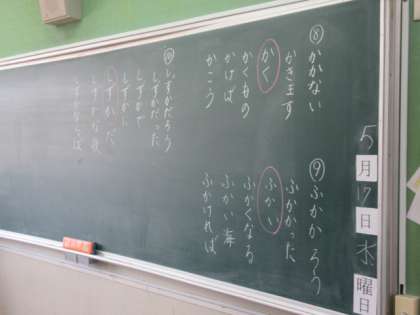 5月17日木曜日
⑧かかない
かきます
かく
かくもの
かけば
かこう
⑨ふかかろう
ふかかった
ふかい
ふかくなる
ふかい海
ふかければ
⑩しずかだろう
しずかだった
しずかで
しずかに
しずかだ
しずかな
しずかならば